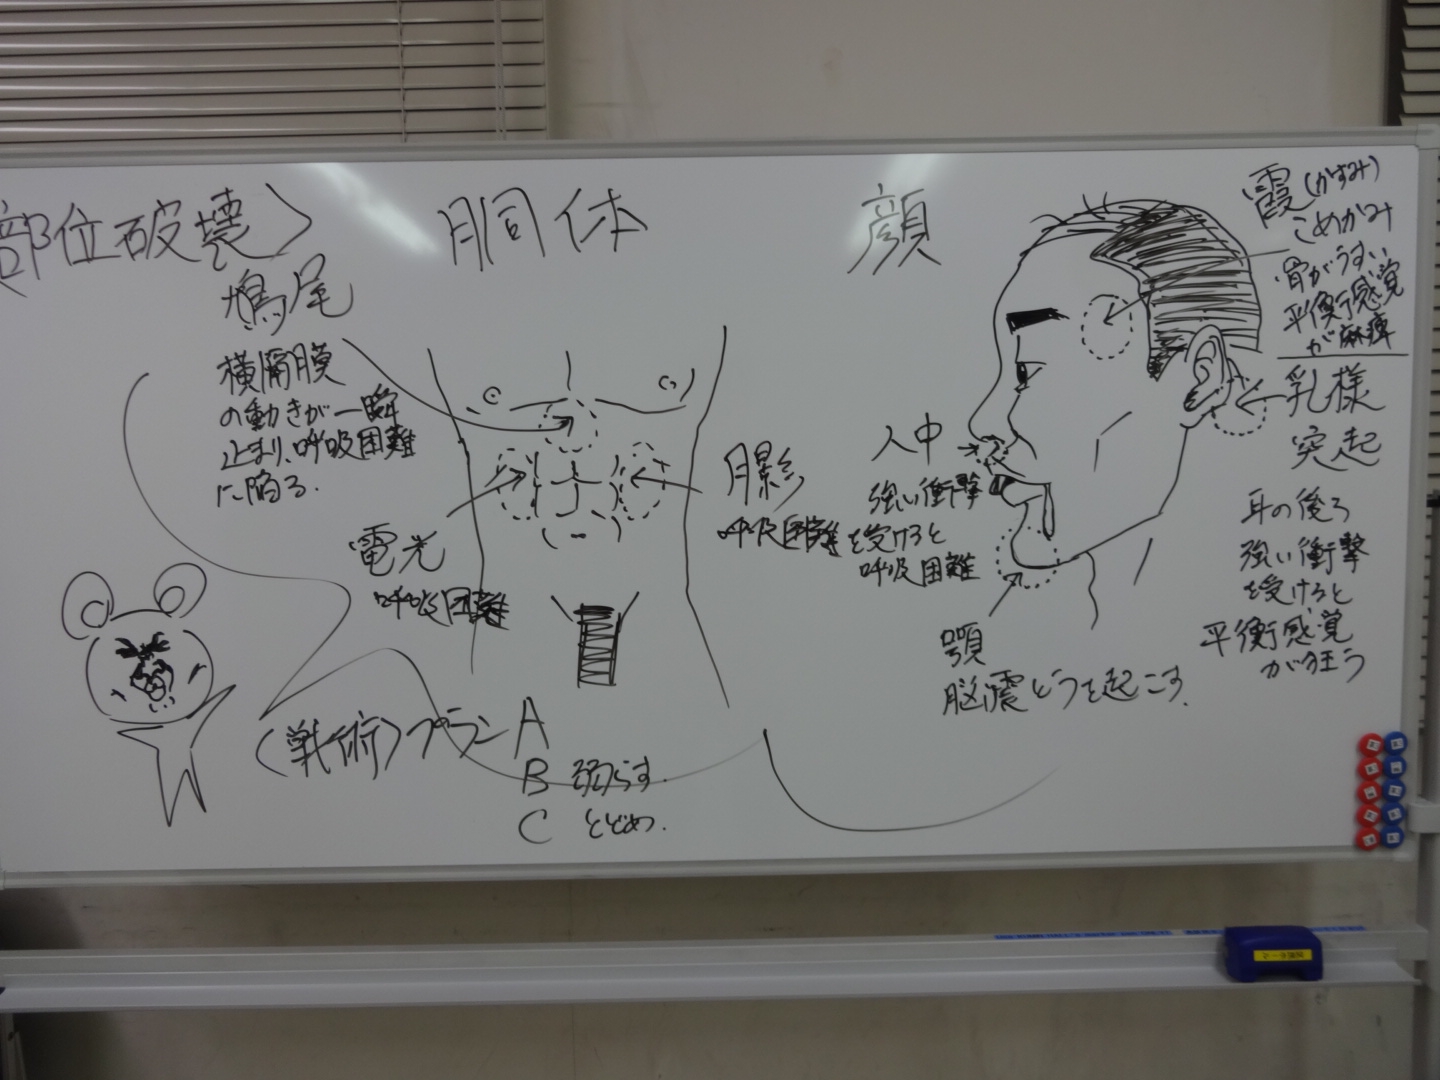 部位破壊〉
胴体
顔
鳩尾
横隔膜
の動きが一瞬
止まり、呼吸困難
に陥る.
電光
呼吸困難
月影
呼吸困難
〈戦術〉プランA
B 弱らす.
C とどめ.
霞(かすみ)
こめかみ
骨がうすい
平衡感覚
が麻痺
乳様
突起
耳の後ろ
強い衝撃
を受けると
平衡感覚
が狂う
人中
強い衝撃
を受けると
呼吸困難
顎
脳震とうを起こす.